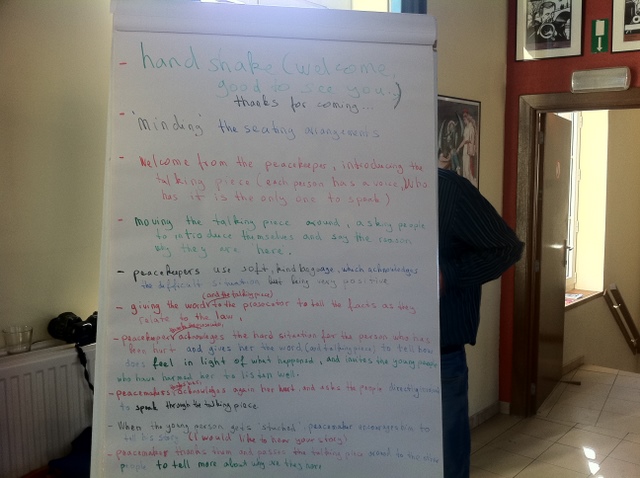 - handshake (welcome,
good to see you..)
thanks for coming...
- 'minding' the seating arrangements
- Welcome from the peacekeeper, introducing the
talking piece (each person has a voice, Who
has it is the only one to speak)
- moving the talking piece around, asking people
to introduce themselves and say the reason
why they are here.
- peacekeepers use soft, kind language, which acknowledges
the difficult situation but being very positive
(and the talking piece)
- giving the word to the prosecutor to tell the facts as they
relate to the law.
- peacekeeper acknowledges the hard situation for the person who has
been hurt and gives her the word (and talking piece) to tell how
does feel in light of what happened, and invites the young people
who have harmed her to listen well.
- peacemakers acknowledges again her hurt, and asks the people directly
to speak through the talking piece.
- When the young person gets 'stucked' peacemaker encourages him to
tell his story (I would like to hear your story)
- peacemaker thanks them and passes the talking piece around to the other
people to tell more about why are they here